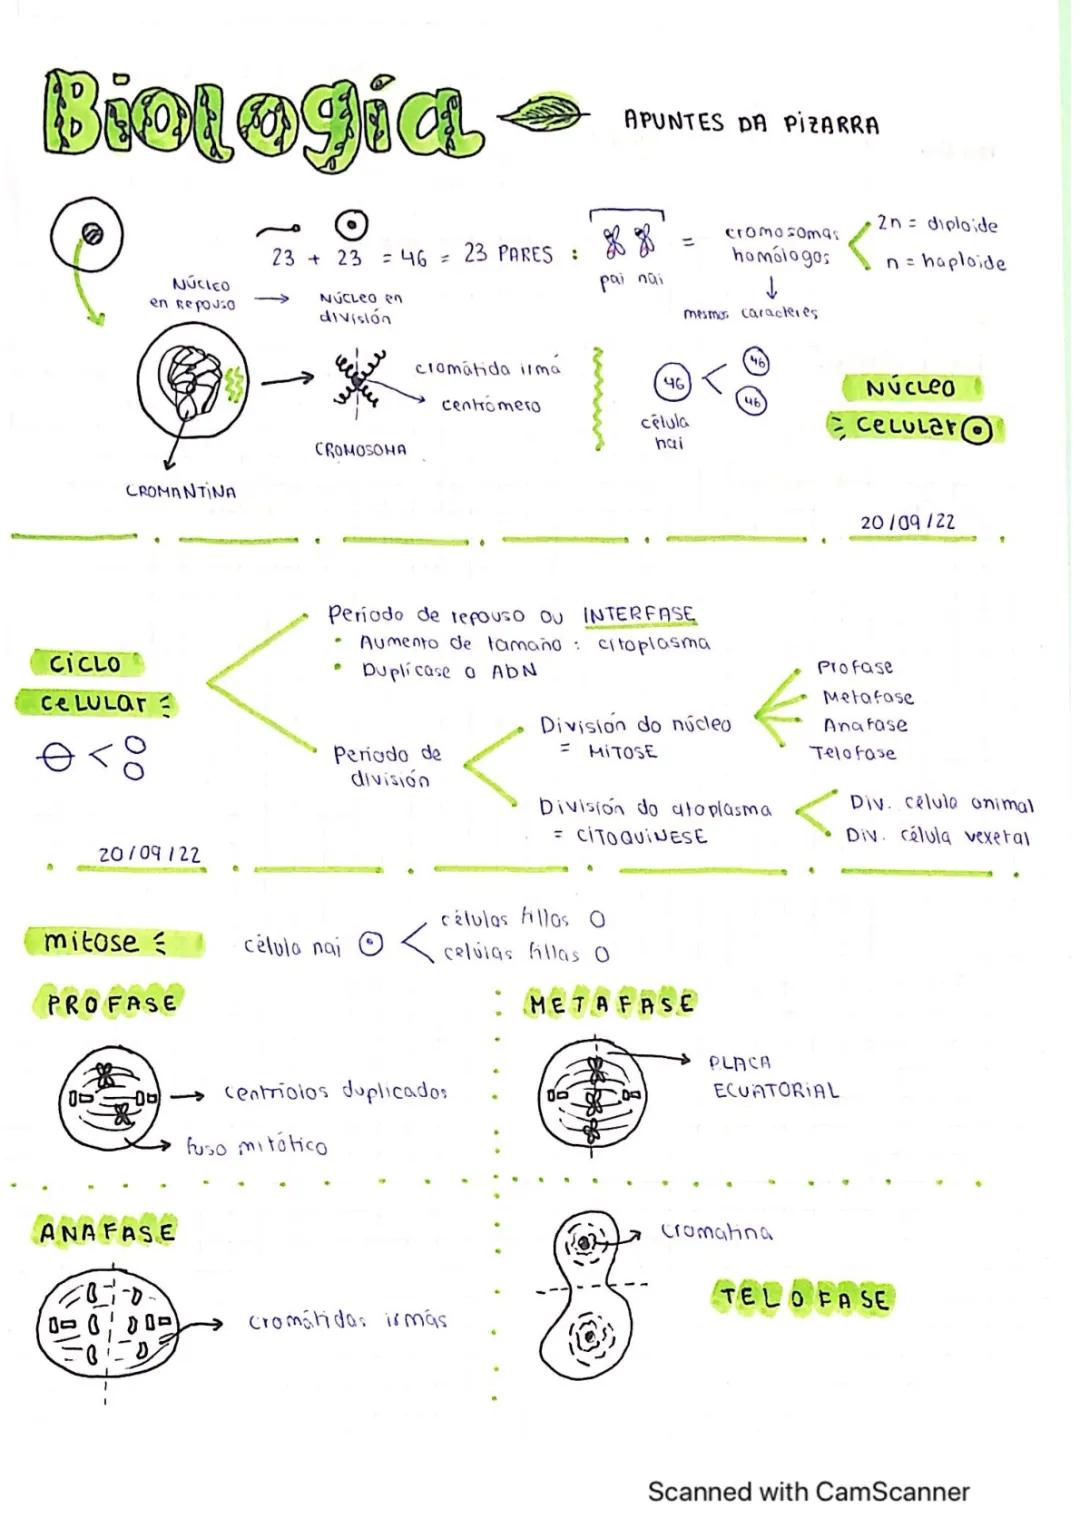 Biología
APUNTES DA PIZARRA
23 + 23 = 46 = 23 PARES :
pai nai
=
cromosomas
homólogos
2n = diploide
n = haploide
mesmos caracteres
Núcleo
en repouso
Núcleo en
división
cromátida irmá
centrómero
CROMOSOMA
CROMANTINA
46
46
46
célula
nai
NÚCLEO
CELULAR
20/09/22
CICLO
CELULAR
Periodo de repouso ou INTERFASE
• Aumento de tamaño : citoplasma
• Duplícase o ADN
Periodo de
división
División do núcleo
= MITOSE
Profase
Metafase
Anafase
Telofase
División do citoplasma
= CITOQUINESE
Div. célula animal
Div. célula vexetal
20/09/22
mitose
célula nai
células fillas
células fillas
PROFASE
centriolos duplicados
fuso mitótico
METAFASE
PLACA
ECUATORIAL
ANAFASE
cromátidas irmás
cromatina
TELOFASE
Scanned with CamScanner